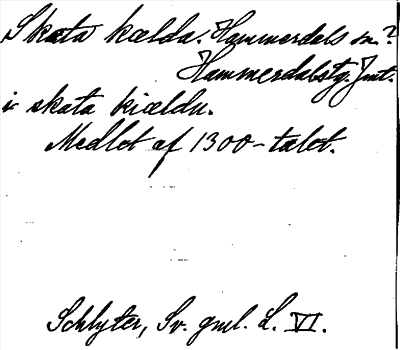 Skata kælda. Hammerdals sn.?
Hammerdalstg. Jmt.
i skata kiældu.
Medlet af 1300-talet.
Schlyter, Sv. gml. L. VI.